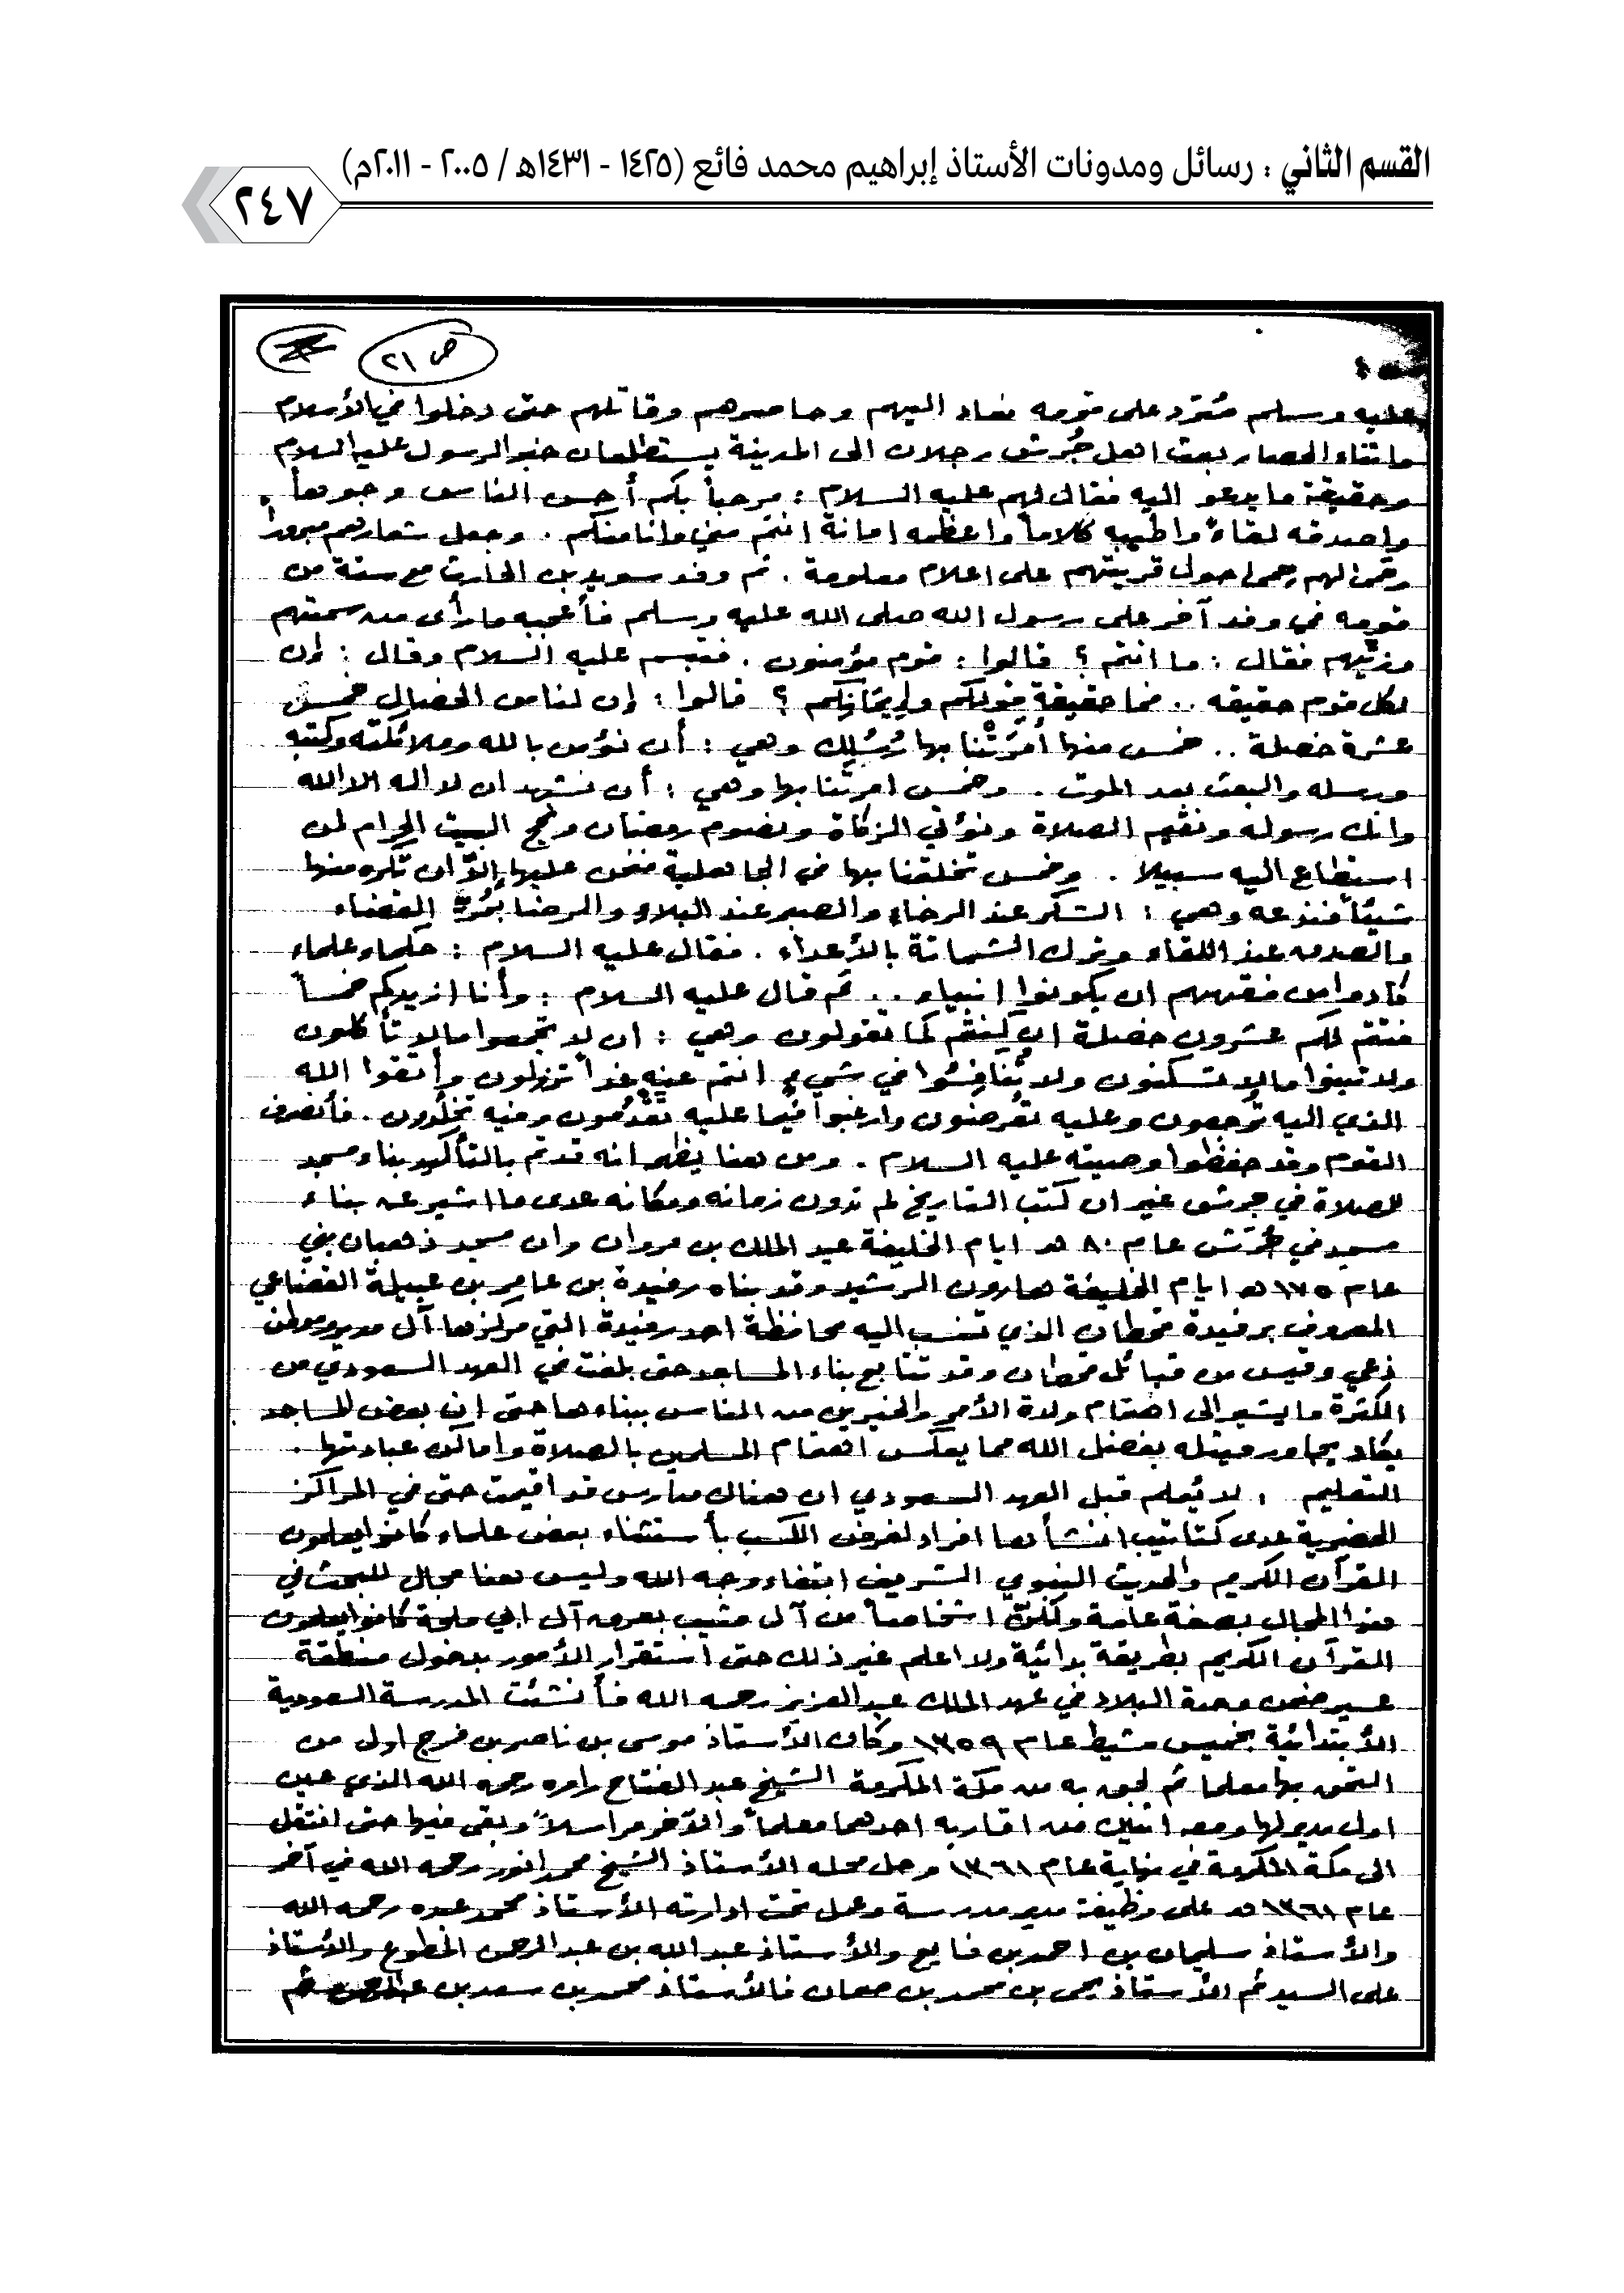 القسم الثاني : رسائل ومدونات الأستاذ إبراهيم محمد فائع (١٤٢٥ - ١٤٣١هـ / ٢٠٠٥ - ٢٠١١م)
٢٤٧
ص ٢١
عليه وسلم صُرَد على قومه فعاد اليهم وحاصرهم وقاتلهم حتى دخلوا في الأسلام
واثناء الحصار بعث اهل جُرش رجلان الى المدينة يستطلعان خبر الرسول عليه السلام
وحقيقة ما يدعو اليه فقال لهم عليه السلام : مرحباً بكم أحسن الناس وجوهاً
واصدقه لقاءً واطيبه كلاماً واعظمه امانة انتم مني وانا منكم . وجعل شعارهم مبروراً
وحمى لهم حمى حول قريتهم على اعلام معلومة . ثم وفد سويد بن الحارث مع ستة من
قومه في وفد آخر على رسول الله صلى الله عليه وسلم فأعجبه ما رأى من سمتهم
وزيّهم فقال : ما انتم ؟ قالوا : قوم مؤمنون . فتبسم عليه السلام وقال : إن
لكل قوم حقيقه .. فما حقيقة قولكم وإيمانكم ؟ قالوا : إن لنا من الخصال خمس
عشرة خصلة .. خمس منها أمرَتْنا بها رُسُلِك وهي : أن نؤمن بالله وملائكته وكتبه
ورسله والبعث بعد الموت . وخمس امرتنا بها وهي : أن نشهد ان لا اله الا الله
وانك رسوله ونقيم الصلاة ونؤتي الزكاة ونصوم رمضان ونحج البيت الحرام لمن
استطاع اليه سبيلا . وخمس تخلقنا بها في الجاهلية فنحن عليها إلاّ ان تكره منها
شيئاً فندعه وهي : الشكر عند الرخاء والصبر عند البلاء والرضا بمُرّ القضاء
والصدق عند اللقاء وترك الشماتة بالأعداء . فقال عليه السلام : حكماء علماء
كادوا من فقههم ان يكونوا انبياء .. ثم قال عليه السلام : وأنا ازيدكم خمساً
فتتم لكم عشرون خصلة إن كنتم كما تقولون وهي : ان لا تجمعوا مالا تأكلون
ولا تبنوا مالا تسكنون ولا تُنافِسُوا في شيءٍ انتم عنه غداً تزولون وأتقوا الله
الذي اليه تُرجعون وعليه تعُرضون وارغبوا فيما عليه تقدُمون وفيه تخلُدون . فأنصرف
القوم وقد حفظوا وصيته عليه السلام . ومن هنا يظهر انه قد تم بالتأكيد بناء مسجد
للصلاة في جرش غير ان كتب التاريخ لم تدون زمانه ومكانه عدى ما اشير عن بناء
مسجد في جُرَش عام ٨٠ هـ ايام الخليفة عبد الملك بن مروان وان مسجد ذهبان بني
عام ١٧٥ هـ ايام الخليفة هارون الرشيد وقد بناه رفيدة بن عامر بن عبيلة القضاعي
المعروف برفيدة قحطان الذي تنسب اليه محافظة احد رفيدة التي مركزها آل مدير وموطن
ذعي وقيس من قبائل قحطان وقد تتابع بناء المساجد حتى بلغت في العهد السعودي من
الكثرة ما يشير الى اهتمام ولاة الأمر والخيرين من الناس ببناءها حتى ان بعض المساجد
يكاد يجاور مثله بفضل الله مما يعكس اهتمام المسلمين بالصلاة واماكن عبادتها .
التعليم : لا يُعلم قبل العهد السعودي ان هناك مدارس قد أقيمت حتى في المراكز
الحضرية عدى كتاتيب انشأها افراد لغرض الكسب بأستثناء بعض علماء كانوا يعلمون
القرآن الكريم والحديث النبوي الشريف ابتغاء وجه الله وليس هنا مجال للبحث في
هذا المجال بصفة عامة ولكنّ اشخاصاً من آل مشيب بعرق آل ابي ملحة كانوا يعلمون
القرآن الكريم بطريقة بدائية ولا اعلم غير ذلك حتى استقرار الأمور بدخول منطقة
عسير ضمن وحدة البلاد في عهد الملك عبدالعزيز رحمه الله فأنشئت المدرسة السعودية
الأبتدائية بخميس مشيط عام ١٣٥٩ وكان الأستاذ موسى بن ناصر بن فرج اول من
التحق بها معلما ثم لحق به من مكة المكرمة الشيخ عبد الفتاح راوه رحمه الله الذي عين
اول مدير لها ومعه اثنين من اقاربه احدهما معلماً والآخر مراسلاً وبقى فيها حتى انتقل
الى مكة المكرمة في نهاية عام ١٣٦١ وحل محله الأستاذ الشيخ محمد انور رحمه الله في آخر
عام ١٣٦١ هـ على وظيفة مدير مدرسة وعمل تحت ادارته الأستاذ محمد عبده رحمه الله
والأستاذ سليمان بن احمد بن فايع والأستاذ عبد الله بن عبد الرحمن المطوع والأستاذ
على السيد ثم الأستاذ يحي بن محمد بن صمان فالأستاذ محمد بن سعد بن عبدالرحمن ثم